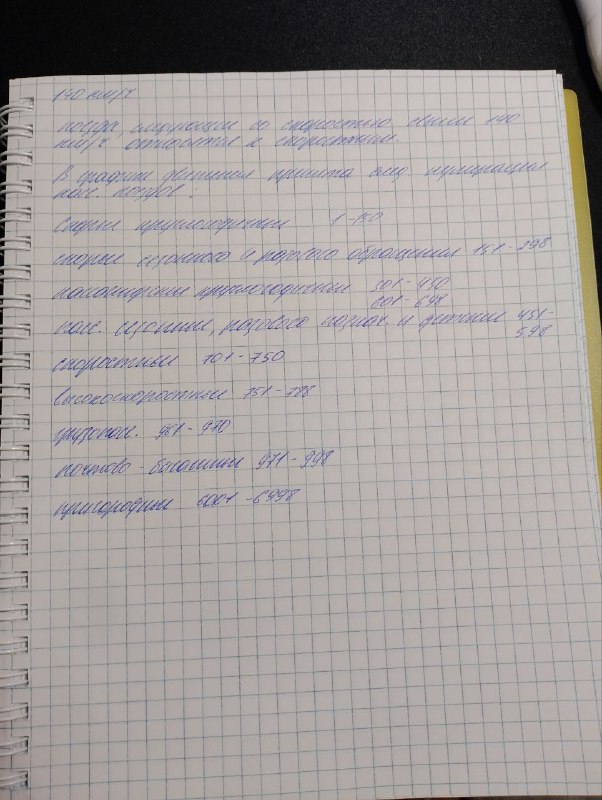 140 км/ч
поезда, следующие со скоростью свыше 140
км/ч относятся к скоростным.
В графике движения принята след. нумерация
пас. поездов:
Скорые круглогодичные 1-150
скорые сезонного и разового обращения 151-298
пассажирские круглогодичные 301-450
601-698
пасс. сезонные, разового назнач. и детские 451-
598
скоростные 701-750
высокоскоростные 751-788
грузопас. 951-970
почтово-багажные 971-998
пригородные 6001-6998